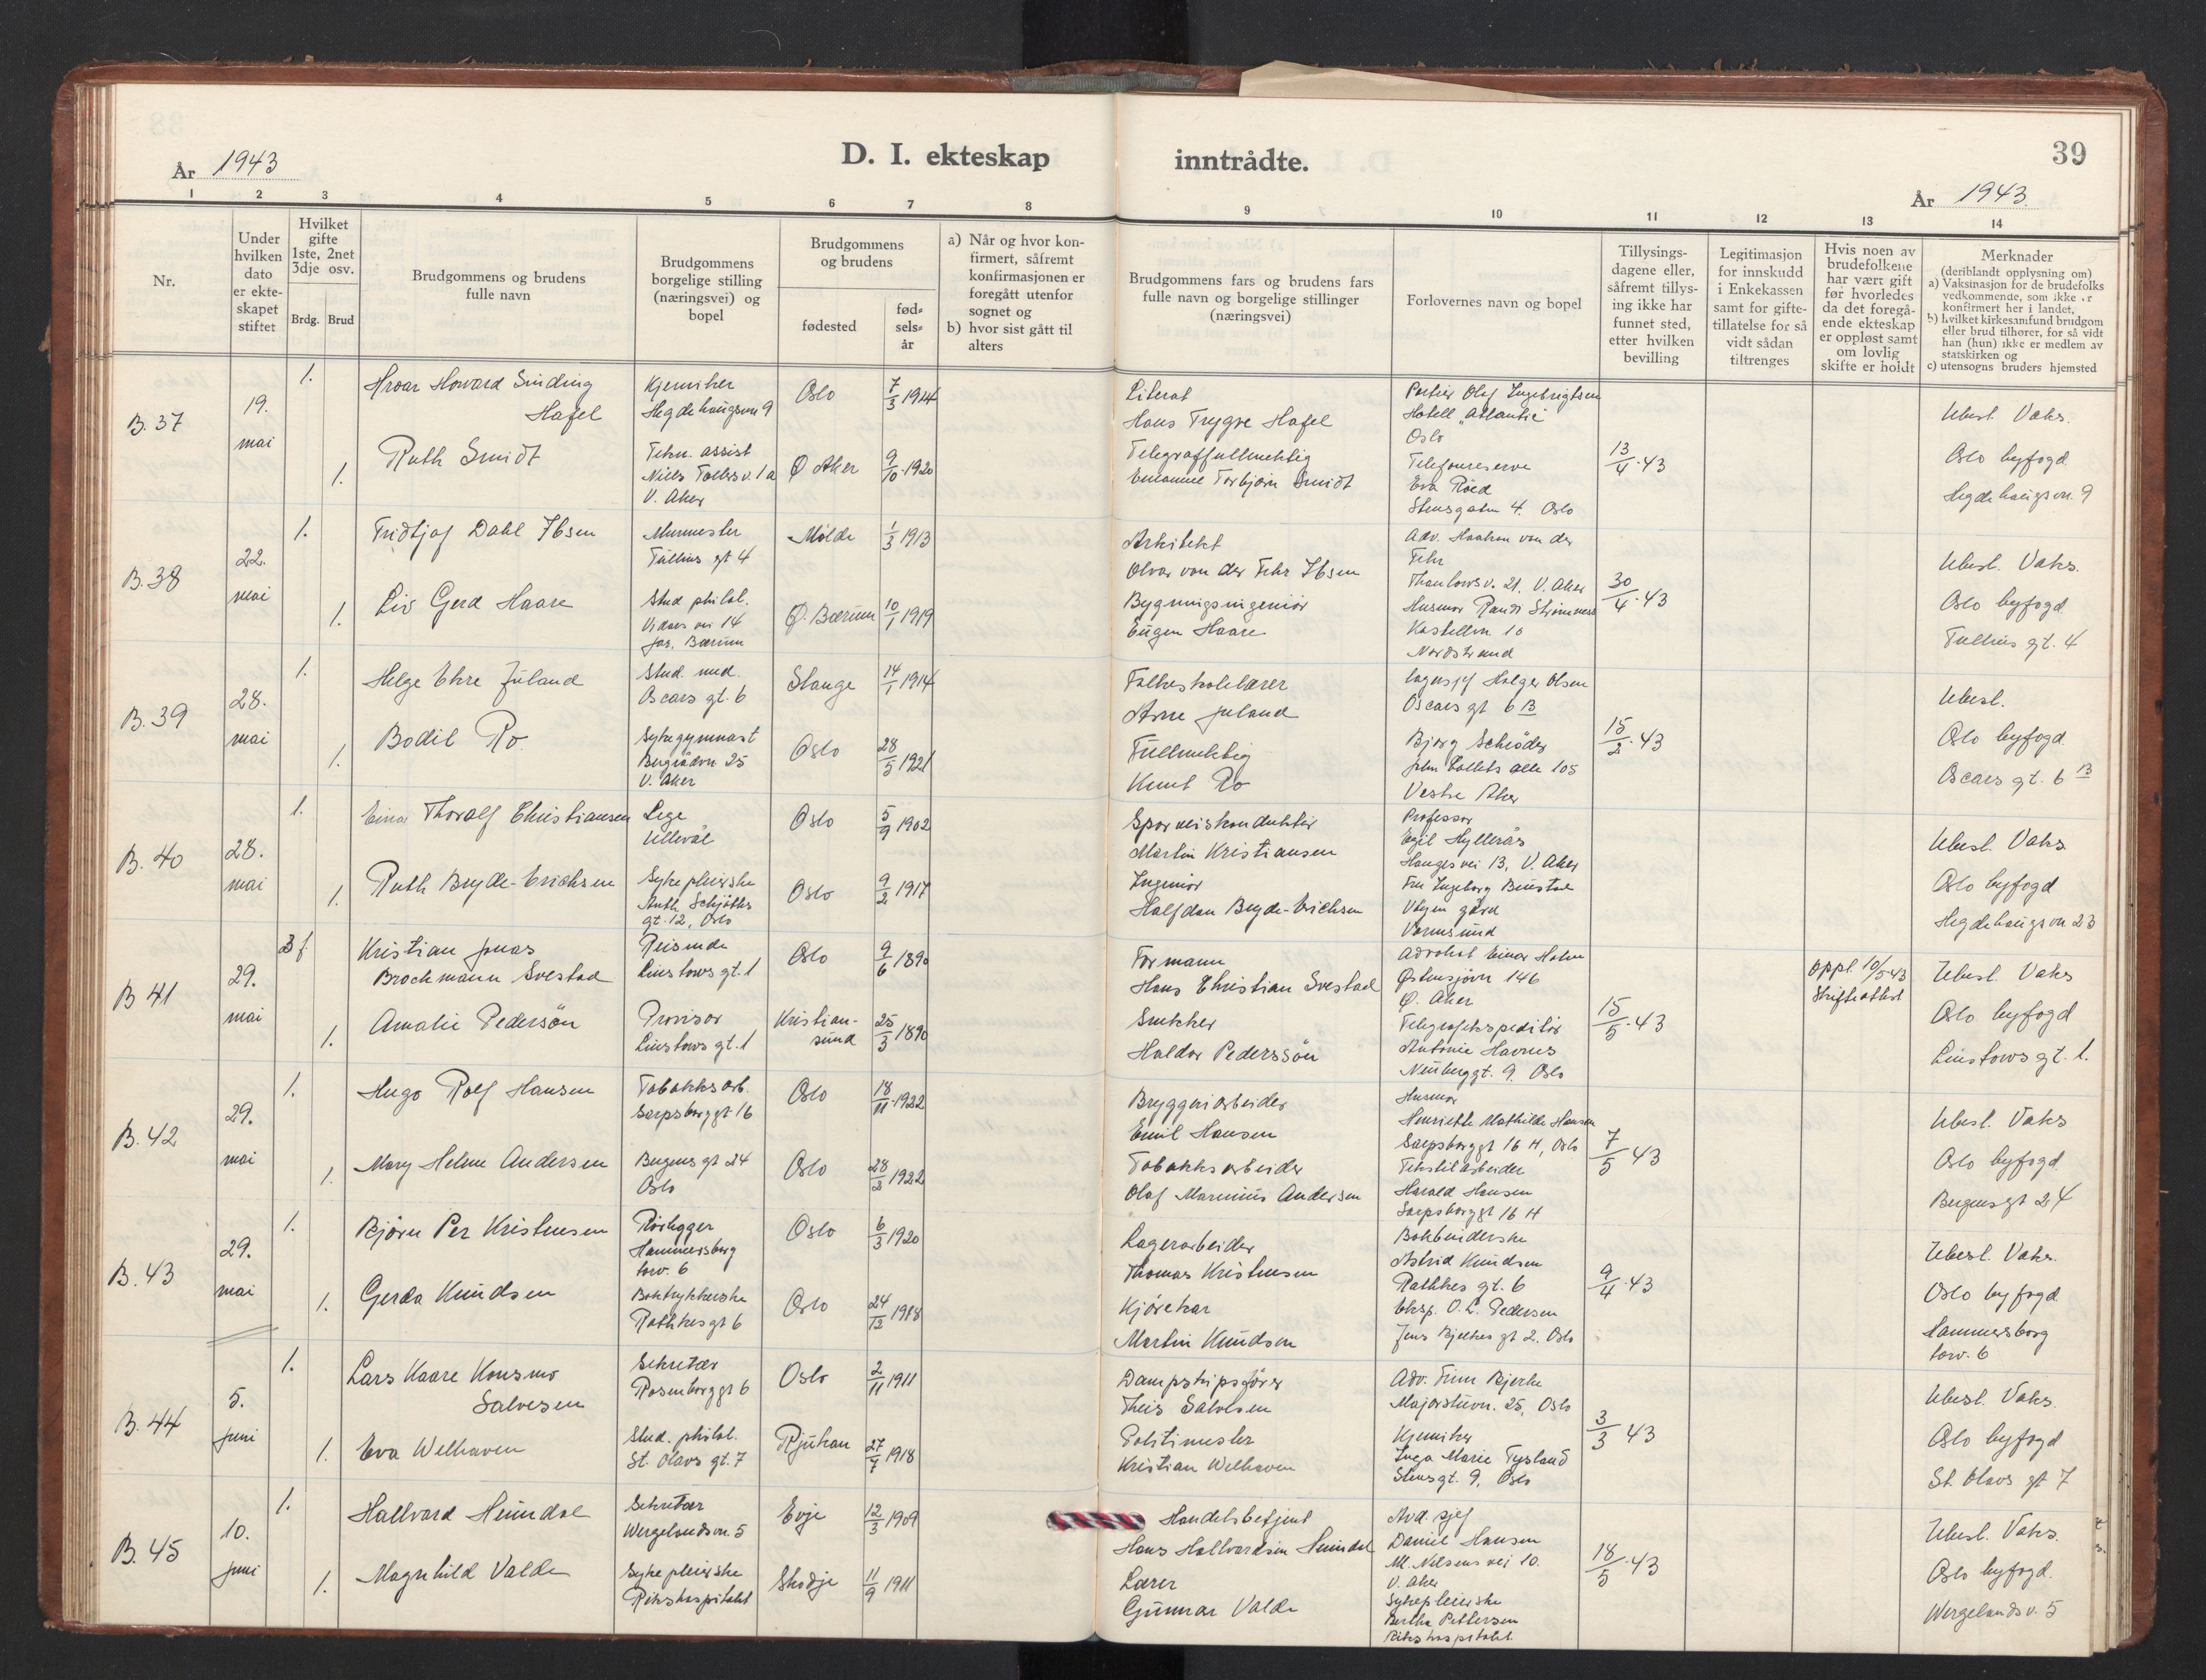 39
År 1943
D. I. ekteskap inntrådte.
År 1943.
1 2 3 4 5 6 7 8 9 10 11 12 13 14
Nr.
Under hvilken dato er ekte-skapet stiftet
Hvilket gifte 1ste, 2net 3dje osv.
Brdg. Brud
Brudgommens og brudens fulle navn
Brudgommens borgelige stilling (næringsvei) og bopel
Brudgommens og brudens
fødested
fød-sels-år
a) Når og hvor kon-firmert, såfremt konfirmasjonen er foregått utenfor sognet og
b) hvor sist gått til alters
Brudgommens fars og brudens fars fulle navn og borgelige stillinger (næringsvei)
Forlovernes navn og bopel
Tillysings-dagene eller, såfremt tillys-ing ikke har funnet sted, etter hvilken bevilling
Legitimasjon for innskudd i Enkekassen samt for gifte-tillatelse for så vidt sådan tiltrenges
Hvis noen av brudefolkene har vært gift før hvorledes da det foregå-ende ekteskap er oppløst samt om lovlig skifte er holdt
Merknader
(deriblandt opplysning om)
a) Vaksinasjon for de brudefolks vedkommende, som ikke er konfirmert her i landet,
b) hvilket kirkesamfund brudgom eller brud tilhører, for så vidt han (hun) ikke er medlem av statskirken og
c) utensogns bruders hjemsted
B. 37
19. mai
1.
Hroar Howard Sinding Hafel
Kjemiker
Hegdehaugsvn 9
Oslo
7/3 1914
Literat
Hans Trygve Hafel
Portier Olaf Ingebrigtsen
Hotell "Atlantic"
Oslo
1.
Ruth Smidt
Tekn. assist
Niels Tollersv. 1a
V. Aker
Ø Aker
9/10 1920
Telegraffullmektig
Emanuel Torbjørn Smidt
Telefonreserve
Eva Röed
Stensgaten 4. Oslo
13/4 43
Ubesl. Vaks.
Oslo byfogd
Hegdehaugsvn. 9
B. 38
22. mai
1.
Fridtjof Dahl Ibsen
Murmester
Tullins gt 4
Molde
1/3 1913
Arkitekt
Olvar von der Fehr Ibsen
Adv. Haakon von der
Fehr
Thaulowsv. 21. V. Aker
1.
Liv Gerd Haare
Stud philol.
Vidars vei 14
Jar. Bærum
Ø. Bærum
10/1 1919
Bygningsingeniør
Eugen Haare
Husmor Randi Strømnes
Kastellvn 10
Nordstrand
30/4 43
Ubesl. Vaks.
Oslo byfogd
Tullins gt. 4
B. 39
28. mai
1.
Helge Ehre Juland
Stud. med.
Oscars gt. 6
Stange
14/1 1914
Folkeskolelærer
Arne Juland
Lagersjef Holger Olsen
Oscars gt 6 B
1.
Bodil Ro
Sykegymnast
Bergrådvn 25
V. Aker
Oslo
28/5 1921
Fullmektig
Knut Ro
Bjørg Schrøder
John Colletts alle 105
Vestre Aker
15/2 43
Ubesl.
Oslo byfogd
Oscars gt. 6 B
B. 40
28. mai
1.
Einar Thoralf Christiansen
Lege
Ullevål
Oslo
5/9 1902
Sporveiskonduktør
Martin Kristiansen
Professor
Egil Hylleràs
Hauges vei 13, V. Aker
1.
Ruth Bryde-Erichsen
Sykepleierske
Anth. Schjøths
gt. 12, Oslo
Oslo
9/2 1917
Ingeniør
Halfdan Bryde-Erichsen
Fru Ingeborg Beustad
gård
Vormsund
Ubesl. Vaks
Oslo byfogd
Hegdehaugsvn 23
B 41
29. mai
3 f
Kristian Jonas
Brochmann Svestad
Reisende
Linstows gt. 1
Oslo
9/6 1890
Formann
Hans Christian Svestad
Advokat Einar Holm
Østensjøvn 146
Ø. Aker
1.
Amalie Pedersön
Provisor
Linstows gt. 1
Kristian-
sund
25/3 1890
Snekker
Haldor Pederssön
Telegrafekspeditør
Antonie Havnes
Neuberggt. 9. Oslo
15/5 43
oppl 10/5 43
Skifteattest
Ubesl. Vaks
Oslo byfogd
Linstows gt. 1.
B. 42
29. mai
1.
Hugo Rolf Hansen
Tobakksarb.
Sarpsborggt 16
Oslo
18/11 1922
Bryggeriarbeider
Emil Hansen
Husmor
Henriette Mathilde Hansen
Sarpsborggt 16 H, Oslo
1.
Mary Helene Andersen
Bergens gt 24
Oslo
Oslo
28/2 1922
Tobakksarbeider
Olaf Marinius Andersen
Tekstilarbeider
Harald Hansen
Sarpsborggt 16 H
7/5 43
Ubesl. Vaks
Oslo byfogd
Bergensgt 24
B. 43
29. mai
1.
Bjørn Per Kristensen
Rørlegger
Hammersborg
torv. 6
Oslo
6/3 1920
Lagerarbeider
Thomas Kristensen
Bokbinderske
Astrid Knudsen
Rathkes gt. 6
1.
Gerda Knudsen
Boktrykkerske
Rathkes gt 6
Oslo
24/12 1918
Kjørekar
Martin Knudsen
Eksp. O. L. Pedersen
Jens Bjelkes gt 2. Oslo
9/4 43
Ubesl. Vaks.
Oslo byfogd
Hammersborg
torv. 6
B. 44
5. juni
1.
Lars Kaare Konsmo
Salvesen
Sekretær
Rosenborggt 6
Oslo
2/11 1911
Dampskipsfører
Theis Salvesen
Adv. Finn Bjerke
Majorstuvn. 25, Oslo
1.
Eva Welhaven
Stud. philol.
St. Olavs gt. 7
Rjukan
27/7 1918
Politimester
Kristian Welhaven
Kjemiker
Inga Marie Tysland
Stensgt. 9, Oslo
3/3 43
Ubesl. Vaks.
Oslo byfogd
St. Olavs gt 7
B. 45
10. juni
1.
Hallvard Heimdal
Sekretær
Wergelandsvn. 5
Evje
12/3 1909
Handelsbetjent
Hans Hallvardsen Heimdal
Avd. sjef
Daniel Hansen
M. Nilsens vei 10.
V. Aker
1.
Magnhild Valde
Sykepleierske
Rikshospitalet
Skodje
11/9 1911
Lærer
Gunnar Valde
Sykepleierske
Bertha Pettersen
Rikshospitalet
18/5 43
Ubesl. Vaks.
Oslo byfogd.
Wergelandsv. 5